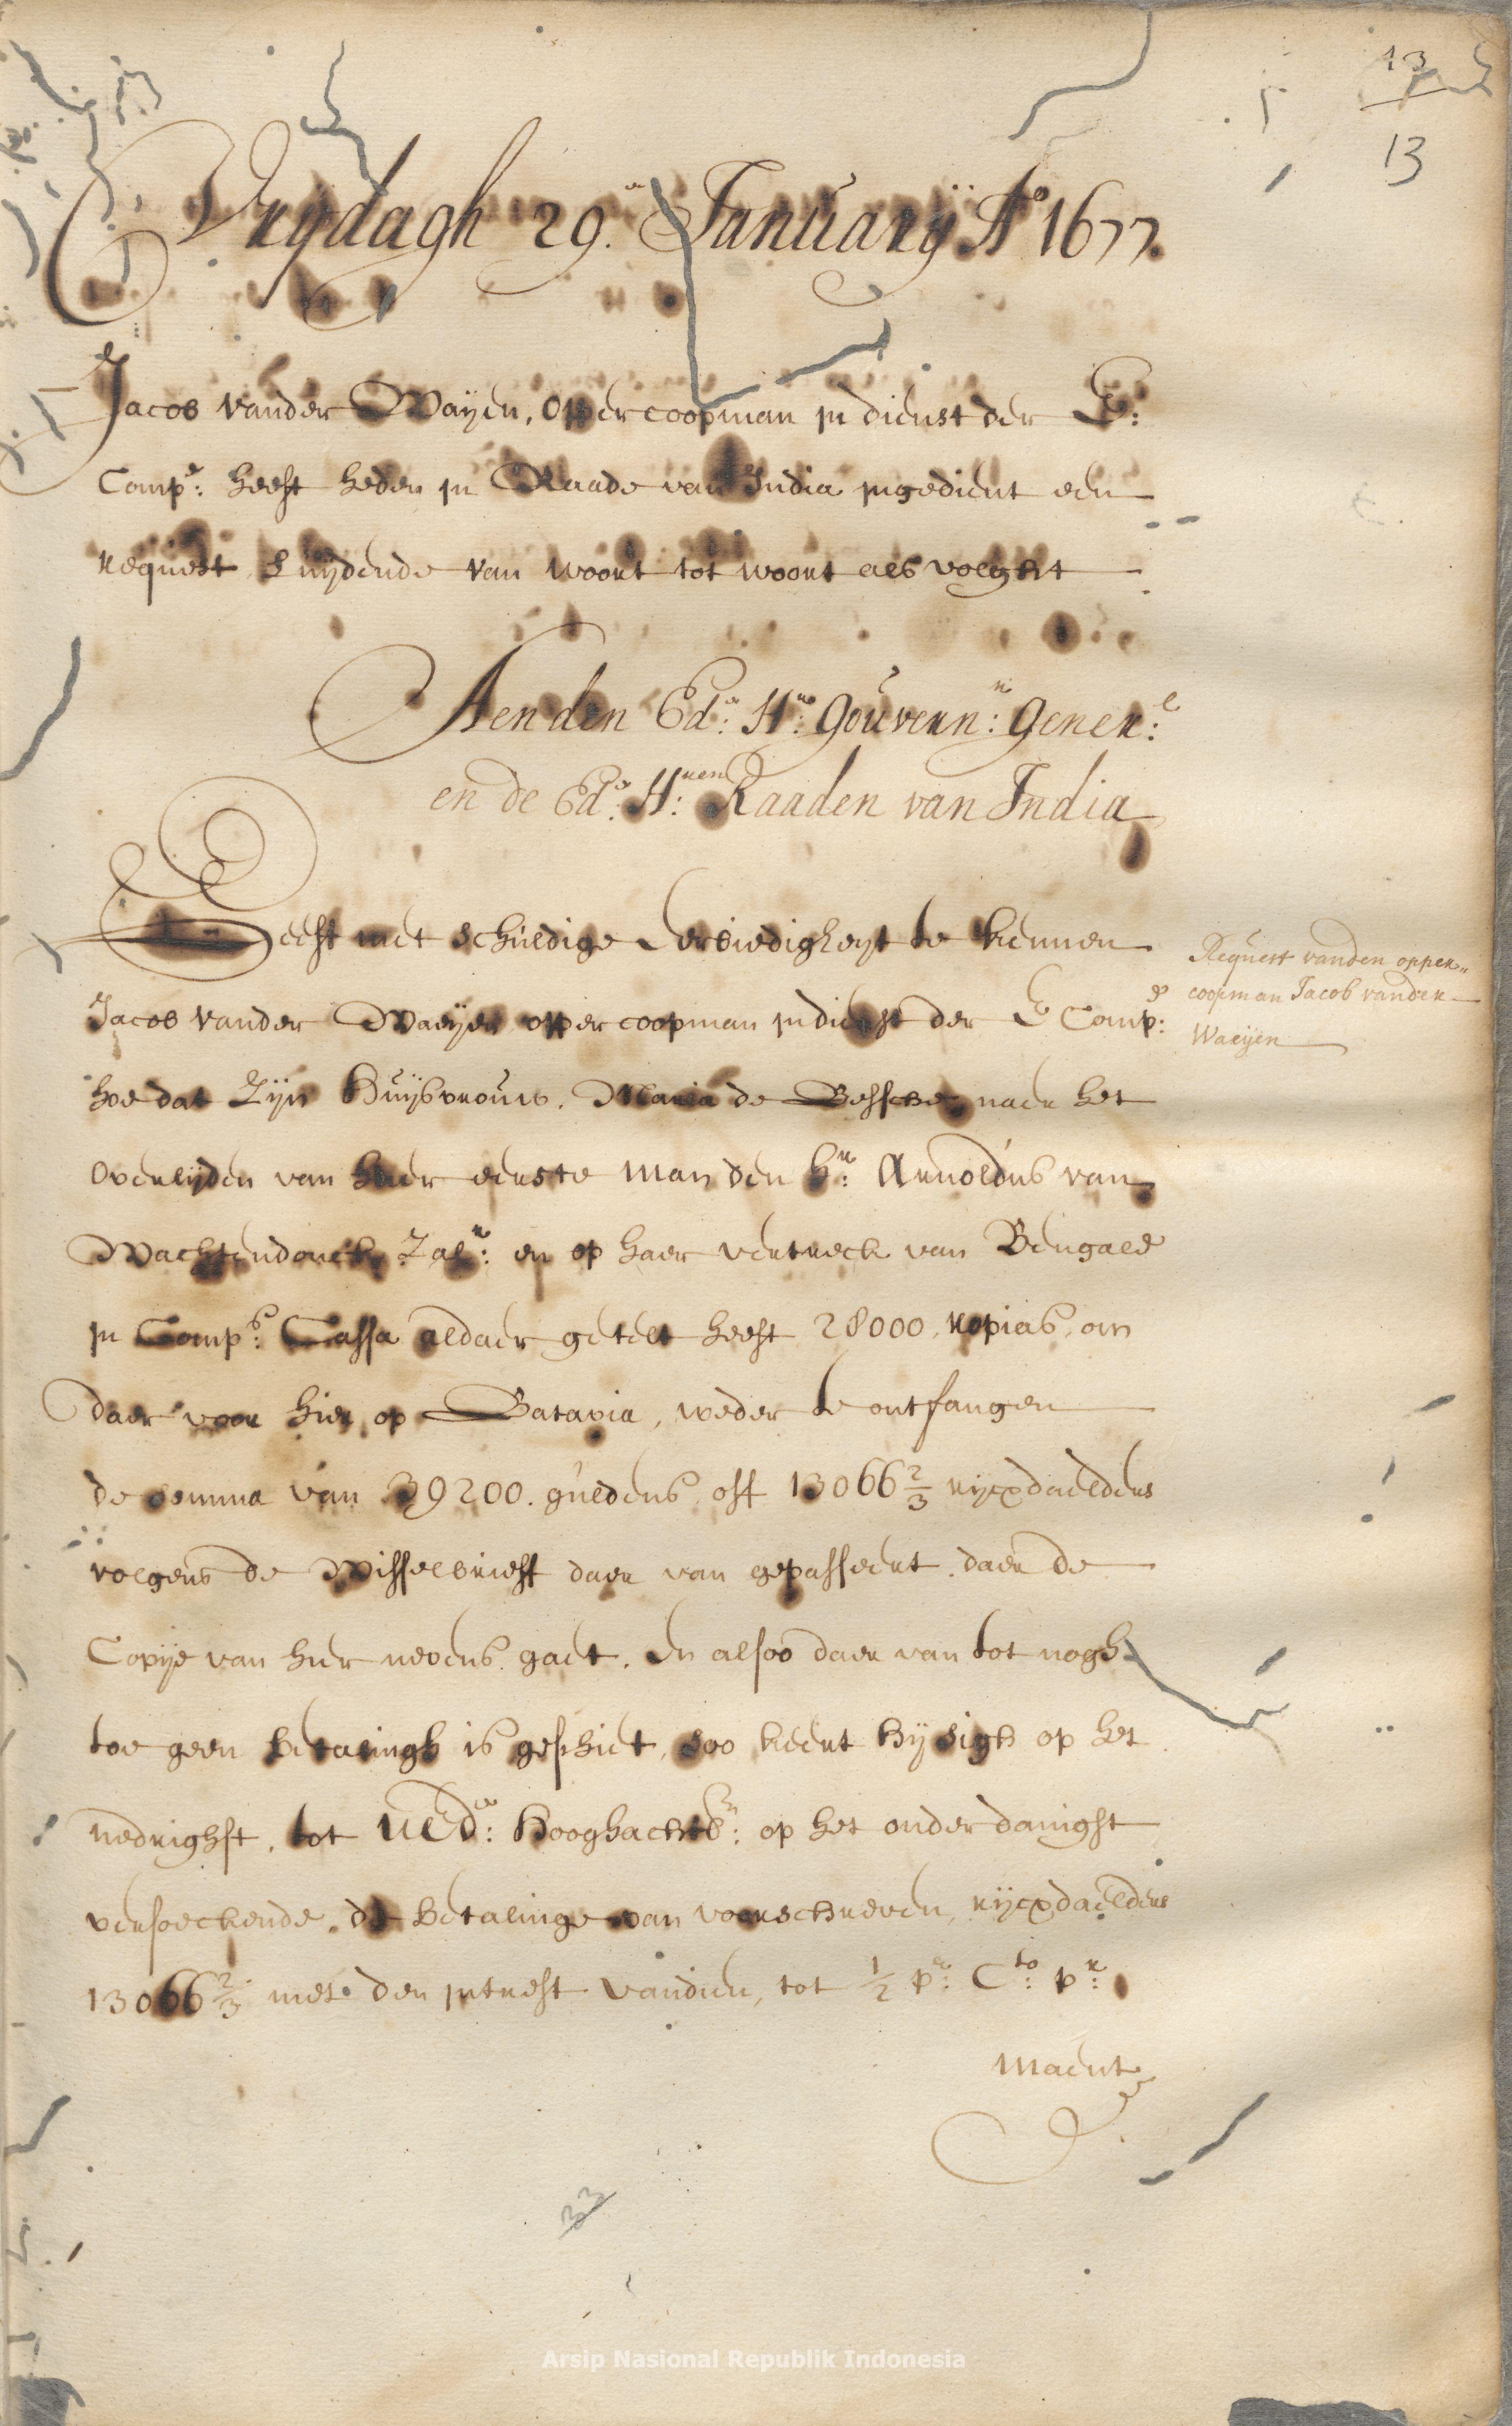 13
13
Vrydagh 29.en January Ao 1677.
Jacob vander Waijen, opper coopman in dienst der E:
Compe: heeft heden in Raade van India ingedient een
request, luijdende van woort tot woort als volght
Aen den Ede: Hr: Gouvernr: Generl:
en de Ede: Hren: Raaden van India
Geeft met schuldige eerbiedigheyt te kennen
Request vanden opper„
coopman Jacob vander
Waeijen
Jacob vander Waeijen opper coopman in dienst der E Compe:
hoe dat zijn huijsvrouw, Maria de naer het
overlijden van haer eerste man den hr: Arnoldus van
Wachtendonck Zalr: en op haer vertreck van Bengale
in Comps: Cassa aldaer getelt heeft 28000, ropias, om
daer voor hier op Batavia, weder te ontfangen
de somma van 39200. guldens, oft 13066 2/3 rijcxdaelders
volgens de wisselbrieff daer van gepasseert, daer de
Copije van hier nevens, gaet. En alsoo daer van tot nogh
toe geen betalingh is geschiet, soo keert hij sigh op het
nedrighst, tot UEde: hooghachtb: op het onderdanighst
versoeckende, de betalinge van voorschreven, rijcxdaelders
13066 2/3 met den intrest vandien, tot 1/2 pr: Cto: pr:
maent
33
Arsip Nasional Republik Indonesia